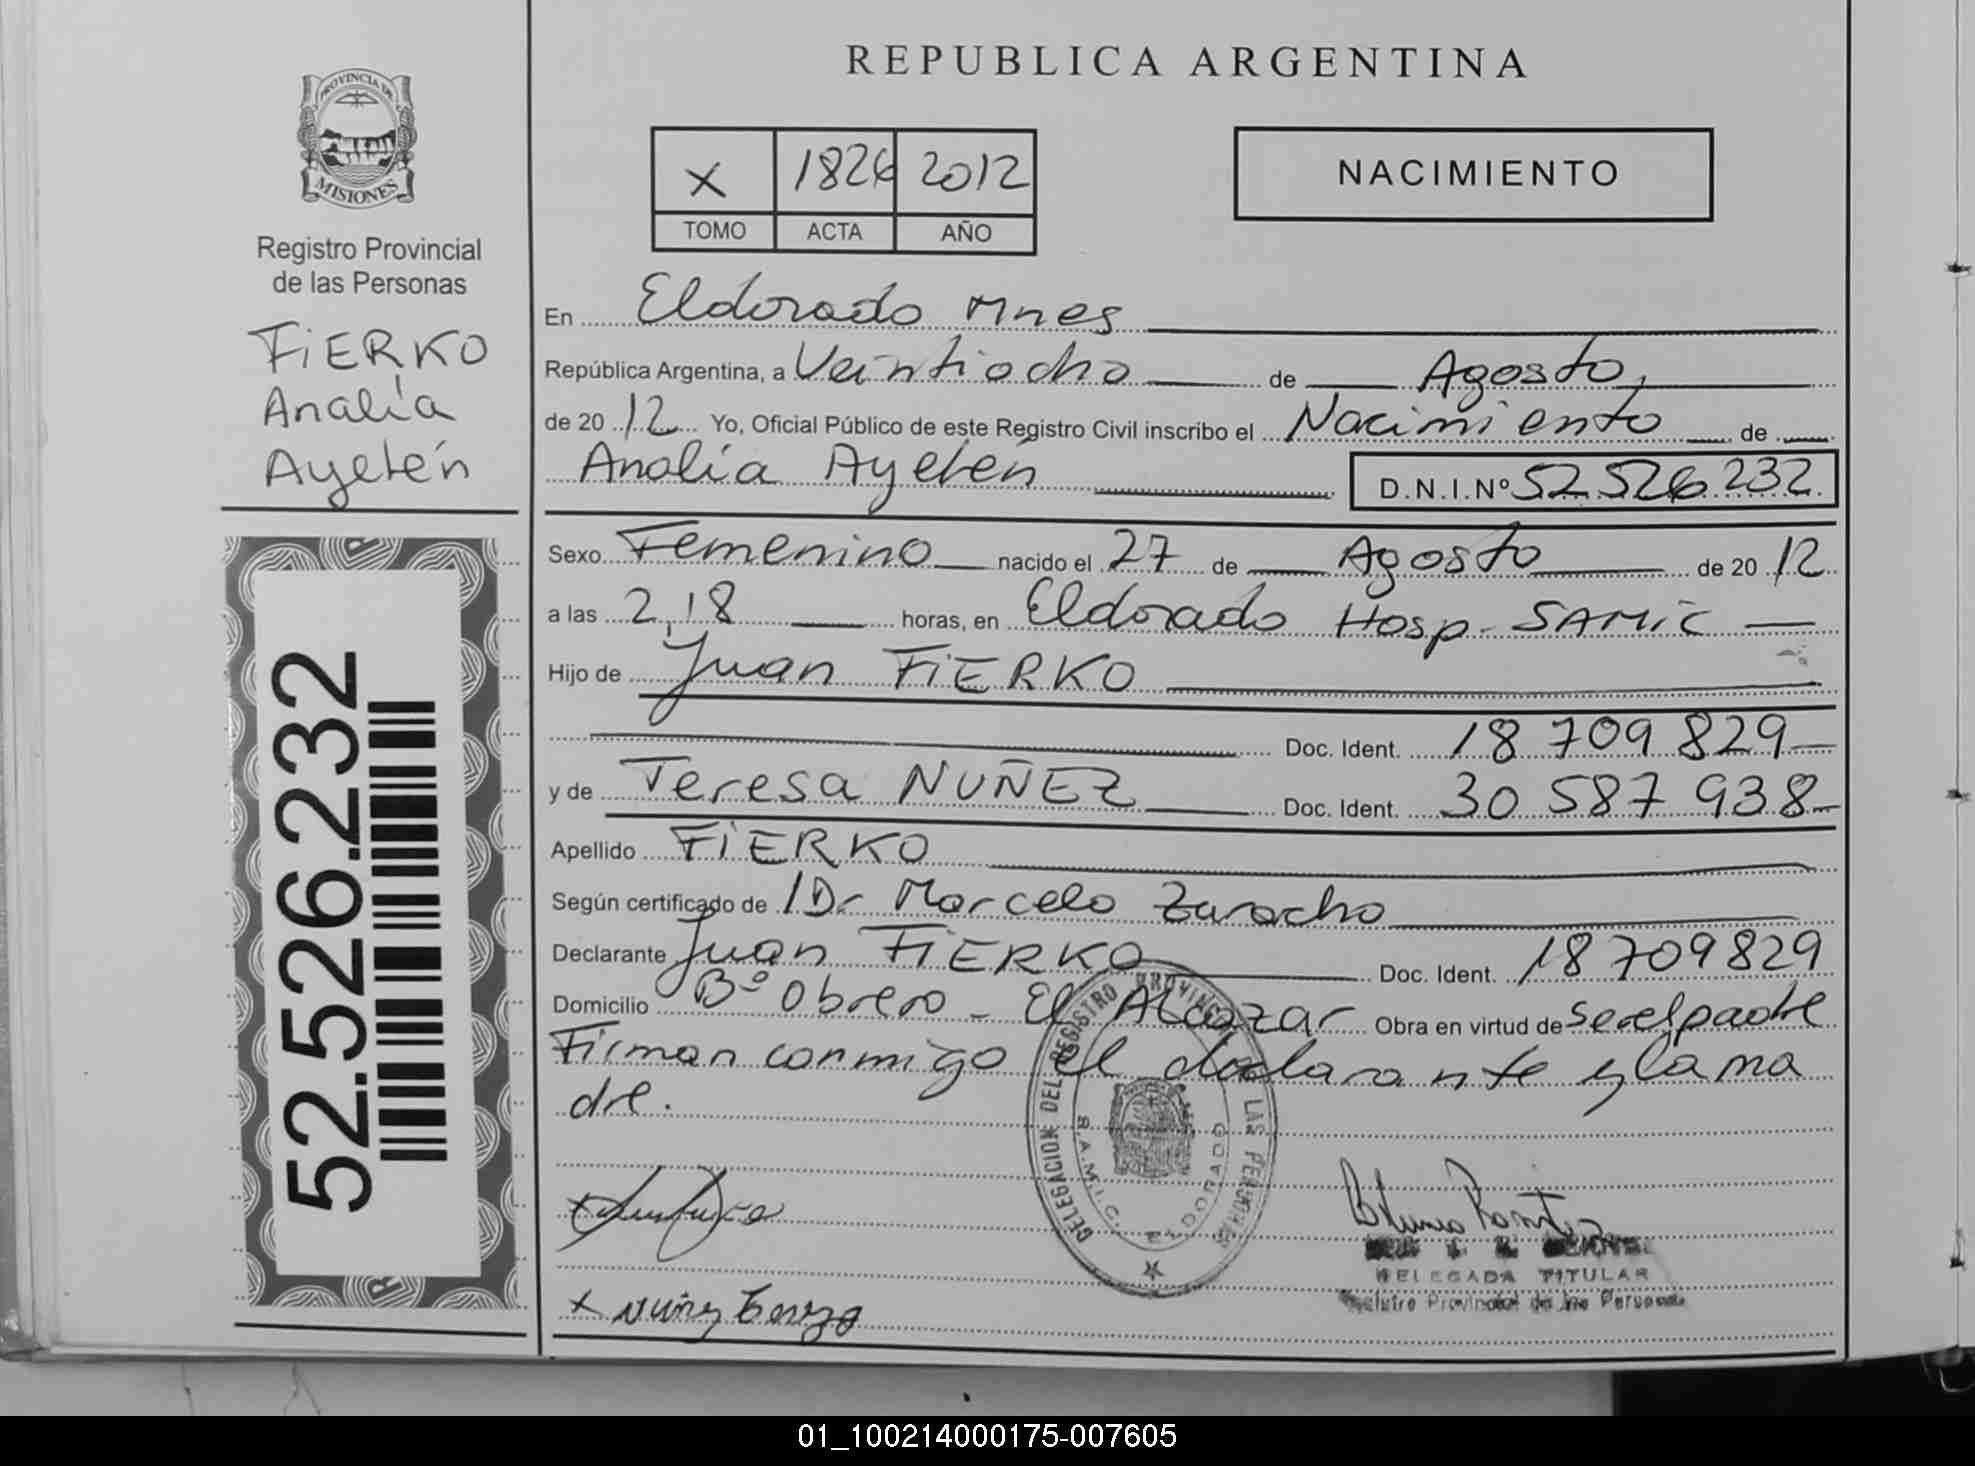 REPUBLICA ARGENTINA
PROVINCIA DE
MISIONES
Registro Provincial
de las Personas
FiERKO
Analía
Ayelén
52.526.232
X 1826 2012
TOMO ACTA AÑO
NACIMIENTO
En Eldorado Mnes
República Argentina, a Veintiocho de Agosto,
de 20 12 Yo, Oficial Público de este Registro Civil inscribo el Nacimiento de
Analía Ayelén D.N.I.Nº 52.526.232
Sexo Femenino nacido el 27 de Agosto de 20 12
a las 2,18 horas, en Eldorado Hosp. SAMiC
Hijo de Juan FiERKO
Doc. Ident. 18 709 829
y de Teresa NUÑEZ Doc. Ident. 30 587 938
Apellido FiERKO
Según certificado de Dr Marcelo Zaracho
Declarante Juan FiERKO Doc. Ident. 18 709829
Domicilio Bº Obrero - El Alcazar Obra en virtud de ser el padre
Firman conmigo el declarante y la ma
dre.
DELEGACION DEL REGISTRO PROVINCIAL DE LAS PERSONAS
S.A.M.I.C. ELDORADO
x Nuñez Tereza
DELEGADA TITULAR
Registro Provincial de las Personas
01_100214000175-007605